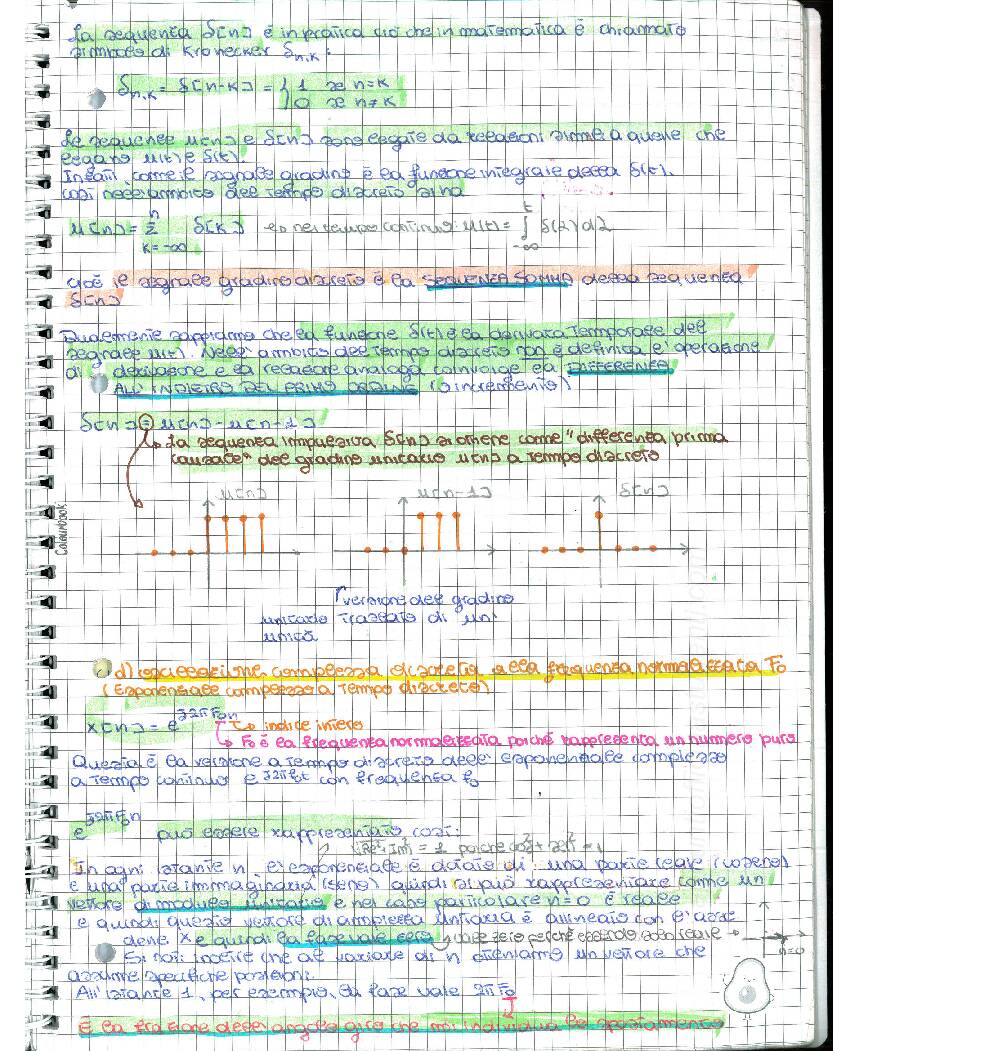 La sequenza δ[n] è in pratica ciò che in matematica è chiamato
simbolo di Kronecker δn,k:
δn,k = δ[n-k] = { 1 se n=k
0 se n≠k
Le sequenze u[n] e δ[n] sono legate da relazioni simili a quelle che
legano u(t) e δ(t).
Infatti come il segnale gradino è la funzione integrale della δ(t),
così nell'ambito del tempo discreto si ha
u[n] = Σ δ[k] e nel tempo continuo: u(t) = ∫ δ(2)d2
n k=-∞ t -∞
cioè il segnale gradino discreto è la SEQUENZA SOMMA della sequenza
δ[n]
Dualmente sappiamo che la funzione δ(t) è la derivata temporale del
segnale u(t). Nell'ambito del tempo discreto non è definita l'operazione
di derivazione e la relazione analoga coinvolge la DIFFERENZA
ALL'INDIETRO DEL PRIMO ORDINE (o incremento)
δ[n] = u[n] - u[n-1]
La sequenza impulsiva δ[n] si ottiene come "differenza prima
causale" del gradino unitario u[n] a tempo discreto
u[n] u[n-1] δ[n]
Colourbook
versione del gradino
unitario traslato di un'
unità
d) oscillazione complessa discreta alla frequenza normalizzata F0
(Esponenziale complesso a tempo discreto)
x[n] = e^j2πF0n
indice intero
F0 è la frequenza normalizzata poiché rappresenta un numero puro
Questa è la versione a tempo discreto dell'esponenziale complesso
a tempo continuo e^j2πf0t con frequenza f0
e^j2πF0n può essere rappresentato così:
√Re²+Im² = 1 poiché cos²+sen² = 1
In ogni istante n, l'esponenziale è dotato di: una parte reale (coseno)
e una parte immaginaria (seno) quindi si può rappresentare come un
vettore di modulo unitario e nel caso particolare n=0 è reale
e quindi questo vettore di ampiezza unitaria è allineato con l'asse
delle x e quindi la fase vale zero vale zero perché essendo solo reale
n=0
Si noti inoltre che al variare di n otteniamo un vettore che
assume specifiche posizioni.
All'istante 1, per esempio, la fase vale 2πF0
È la frazione dell'angolo giro che mi individua lo spostamento